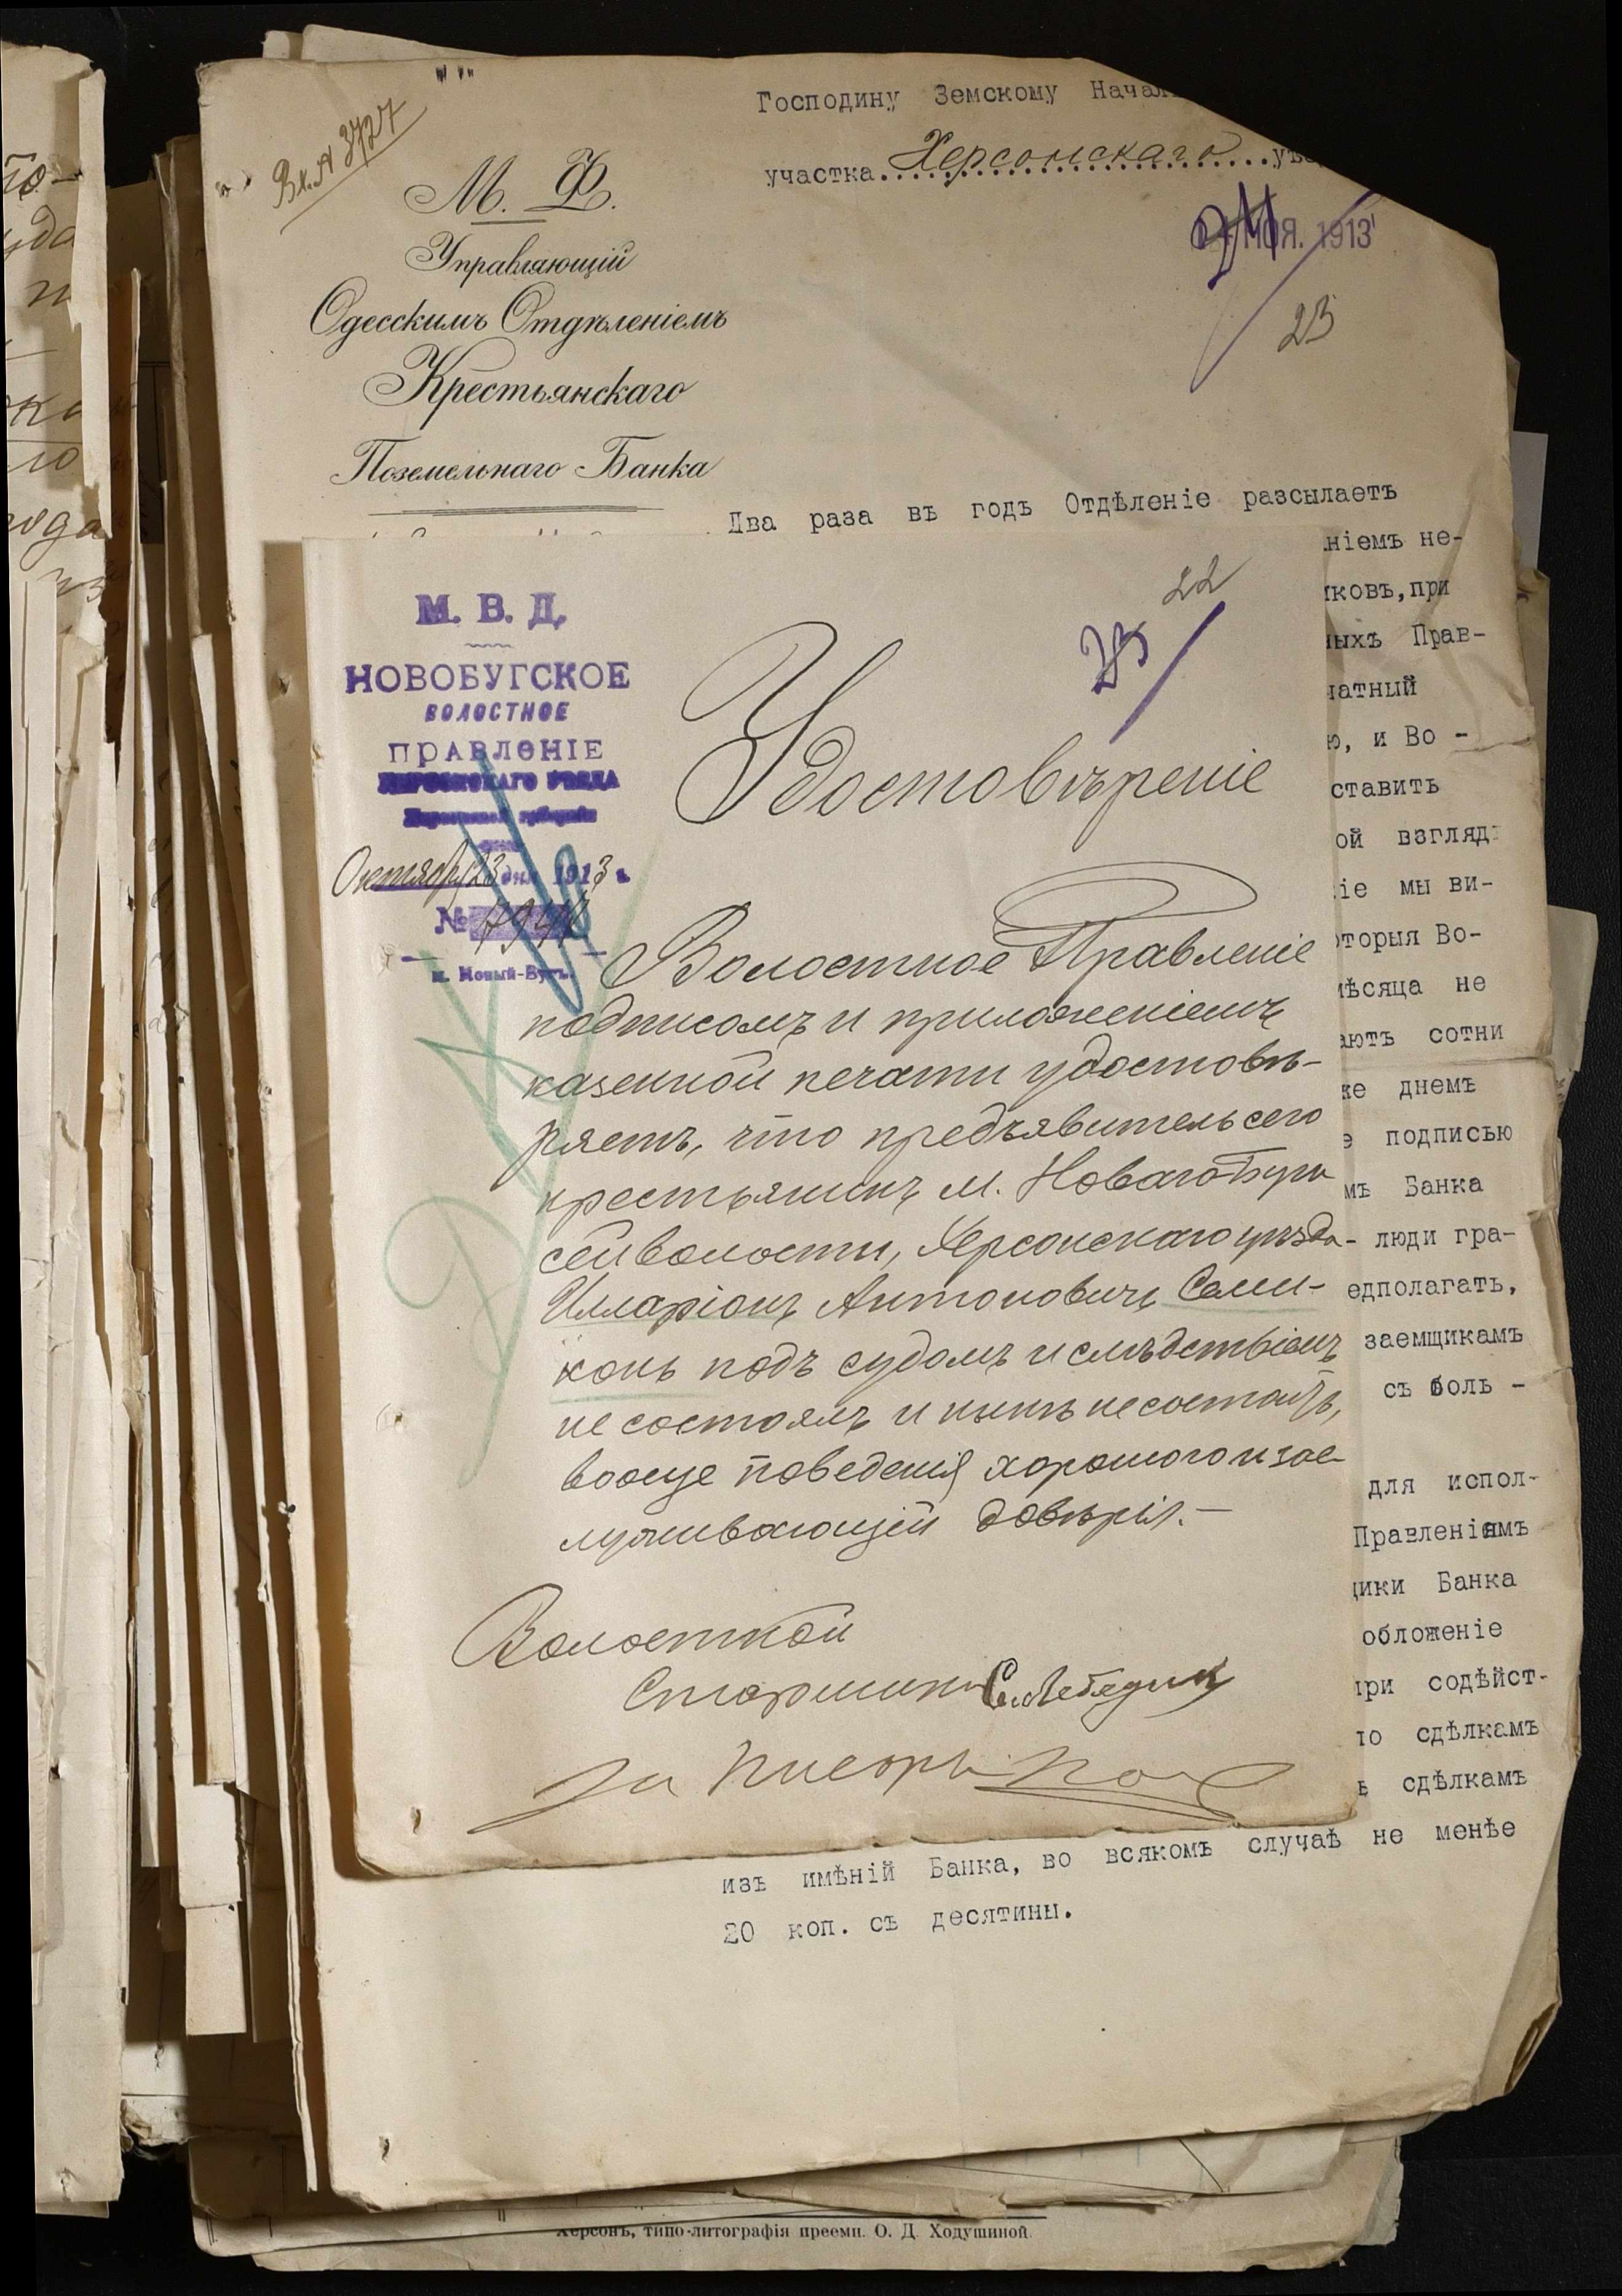 Вх. № 3727
Господину Земскому Начал
участка Херсонскаго уѣ
НОЯ. 1913
23
М. Ф.
Управляющій
Одесскимъ Отдѣленіемъ
Крестьянскаго
Поземельнаго Банка
Два раза въ годъ Отдѣленіе разсылаетъ
ніемъ не-
иковъ, при
ныхъ Прав-
чатный
ю, и Во -
ставить
ой взгляд
іе мы ви-
оторыя Во-
мѣсяца не
аютъ сотни
же днемъ
е подписью
мъ Банка
- люди гра-
едполагать,
заемщикамъ
съ боль -
для испол-
Правленіямъ
щики Банка
обложеніе
при содѣйст-
по сдѣлкамъ
ъ сдѣлкамъ
изъ имѣній Банка, во всякомъ случаѣ не менѣе
20 коп. съ десятины.
22
23
М. В. Д.
НОВОБУГСКОЕ
ВОЛОСТНОЕ
ПРАВЛЕНІЕ
ХЕРСОНСКАГО УѢЗДА
Херсонской губерніи
Октября 23 дня 1913 г.
№
м. Новый-Бугъ.
Удостовѣреніе
Волостное Правленіе
подписомъ и приложеніемъ
казенной печати удостовѣ-
ряетъ, что предъявитель сего
крестьянинъ м. Новаго Буга
сей волости, Херсонскаго уѣзда
Илларіонъ Антоновичъ Семи-
конь подъ судомъ и слѣдствіемъ
не состоялъ и нынѣ не состоитъ,
вооще поведенія хорошого и зас-
луживающей довѣрія. —
Волостной
Старшина С. Лебедик
За Писаря
Херсонъ, типо-литографія преемн. О. Д. Ходушиной.